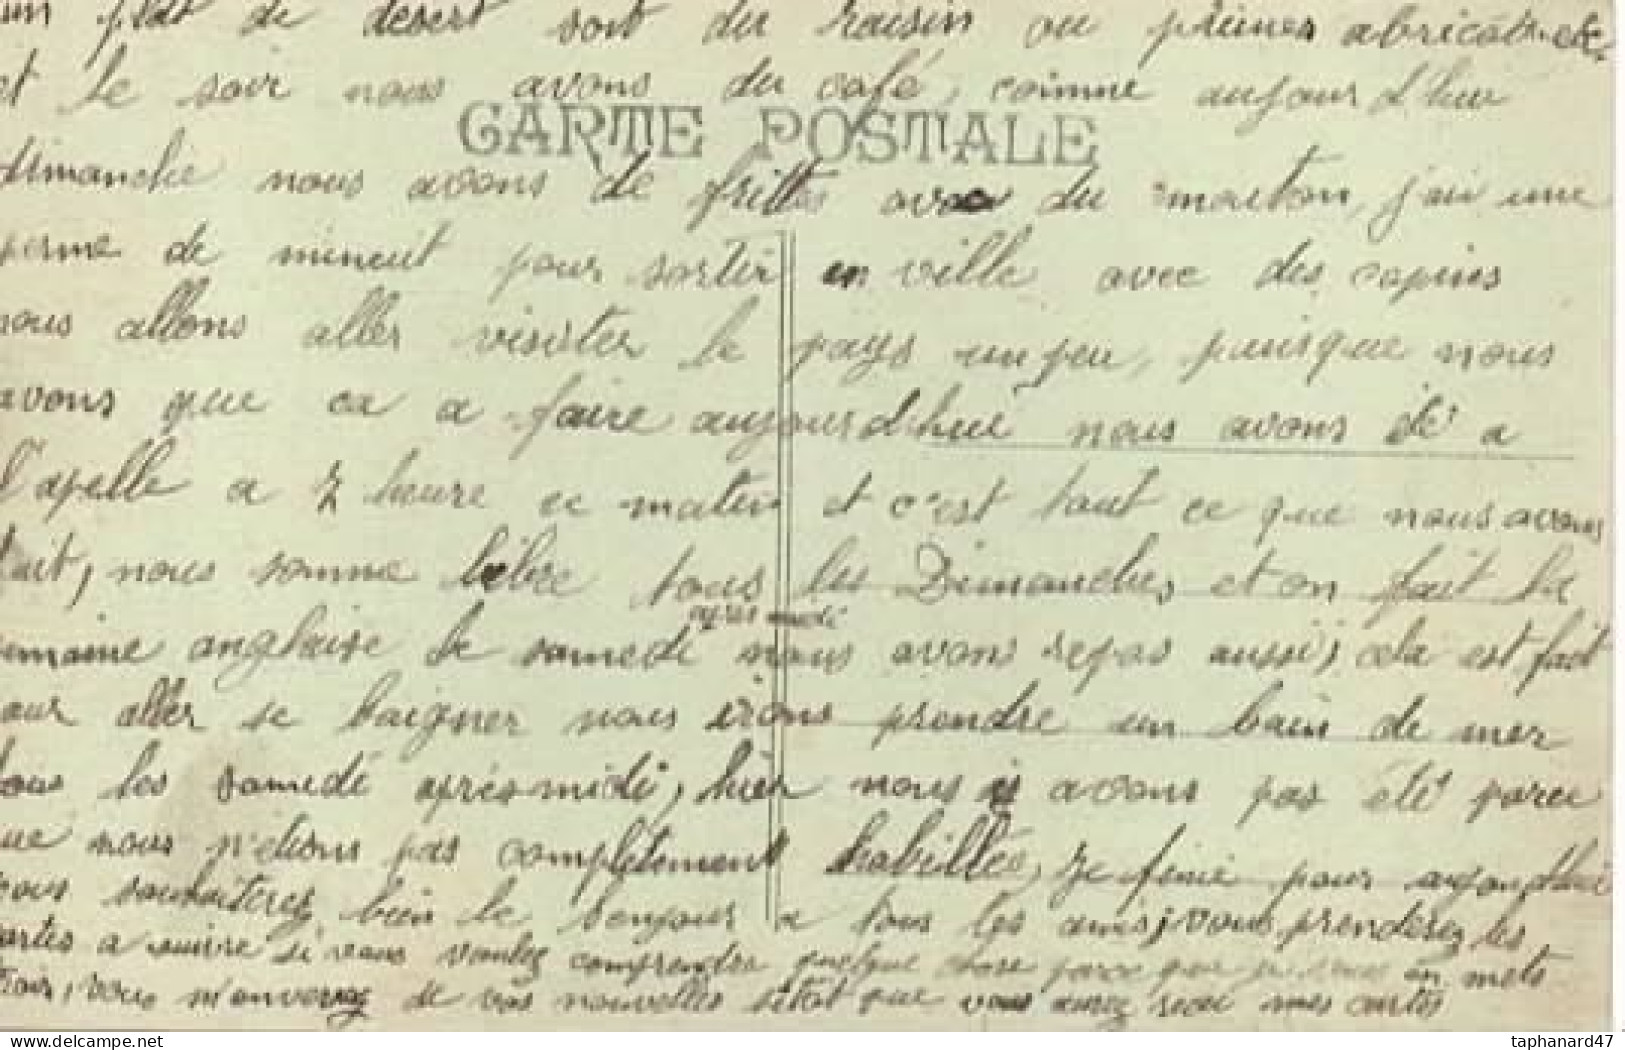 un plat de desert soit du raisin ou prunes abricots etc
et le soir nous avons du café, comme aujourd'hui
CARTE POSTALE
dimanche nous avons de frittes avec du mouton, j'ai une
perme de minuit pour sortir en ville avec des copins
nous allons aller visister le pays un peu, puisque nous
avons que ca a faire aujourd'hui nous avons été a
l'apelle a 7 heure ce matin et c'est tout ce que nous avons
fait, nous somme libre tous les Dimanches, et on fait la
semaine anglaise le samedi après midi nous avons repos aussi, cela est fait
pour aller se baigner nous irons prendre un bain de mer
tous les samedi après midi, hier nous y avons pas été parce
que nous n'etions pas complètement habillée, je finie pour aujourd'hui
vous souhaiterez bien le bonjour a tous les amis, vous prenderez les
cartes a suivre si vous voulez comprendre quelque chose parce que je vous en mets
vous m'enverez de vos nouvelles sitôt que vous aurez recu mes cartes
taphanard47